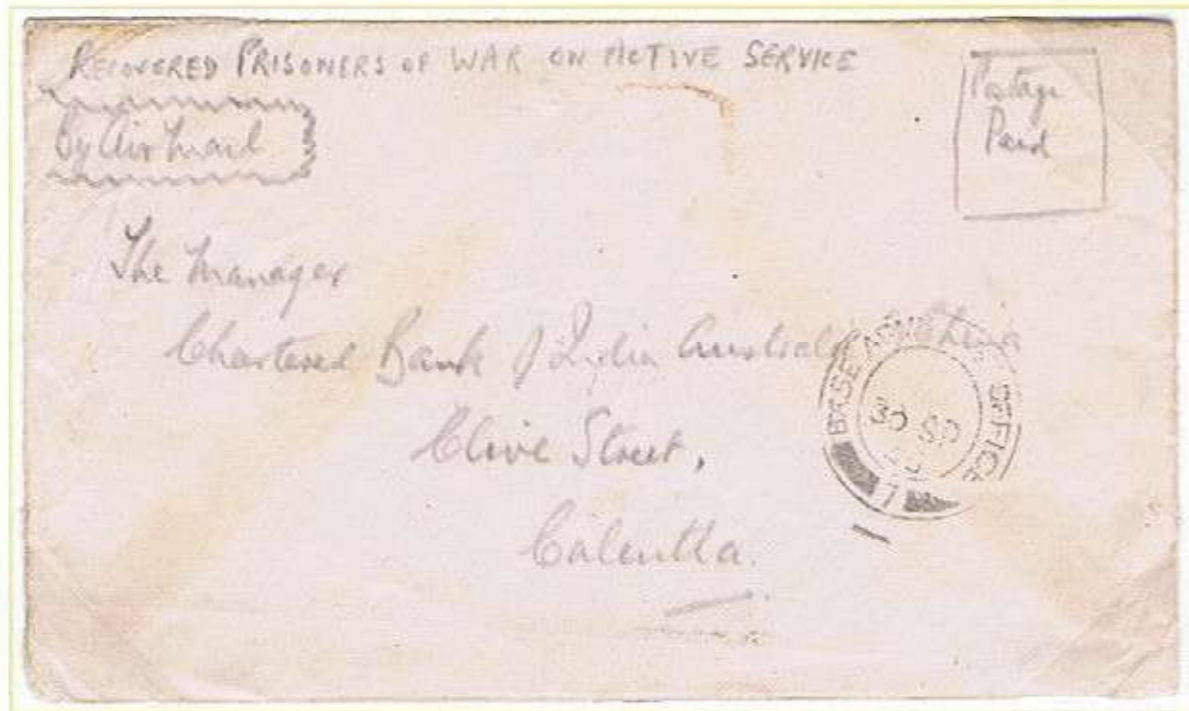 RECOVERED PRISONERS OF WAR ON ACTIVE SERVICE
By Air Mail
Postage
Paid
The Manager
Chartered Bank of India Australia China
Clive Street,
Calcutta.
BASE ARMY OFFICE
30 SP
7